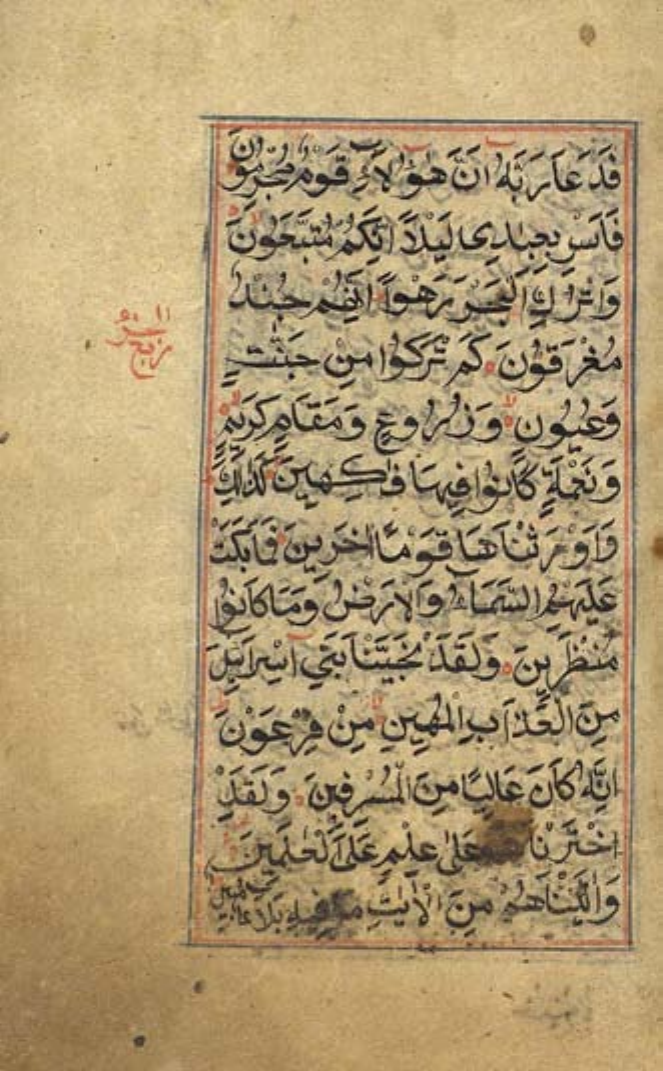 فَدَعَا رَبَّهُ اَنَّ هٰؤُلَاءِ قَوْمٌ مُجْرِمُوْنَ
فَاَسْرِ بِعِبَادِي لَيْلًا اِنَّكُمْ مُتَّبَعُوْنَ
وَاتْرُكِ الْبَحْرَ رَهْوًا اِنَّهُمْ جُنْدٌ
مُغْرَقُوْنَ كَمْ تَرَكُوْا مِنْ جَنّٰتٍ
وَعُيُوْنٍ وَزُرُوْعٍ وَمَقَامٍ كَرِيْمٍ
وَنَعْمَةٍ كَانُوْا فِيْهَا فٰكِهِيْنَ كَذٰلِكَ
وَاَوْرَثْنَاهَا قَوْمًا اٰخَرِيْنَ فَمَا بَكَتْ
عَلَيْهِمُ السَّمَاءُ وَالْاَرْضُ وَمَا كَانُوْا
مُنْظَرِيْنَ وَلَقَدْ نَجَّيْنَا بَنِي اِسْرَائِيْلَ
مِنَ الْعَذَابِ الْمُهِيْنِ مِنْ فِرْعَوْنَ
اِنَّهُ كَانَ عَالِيًا مِنَ الْمُسْرِفِيْنَ وَلَقَدْ
اخْتَرْنَا عَلٰى عِلْمٍ عَلَى الْعٰلَمِيْنَ
وَاٰتَيْنَاهُمْ مِنَ الْاٰيٰتِ مَا فِيْهِ بَلَاءٌ مُبِيْنٌ